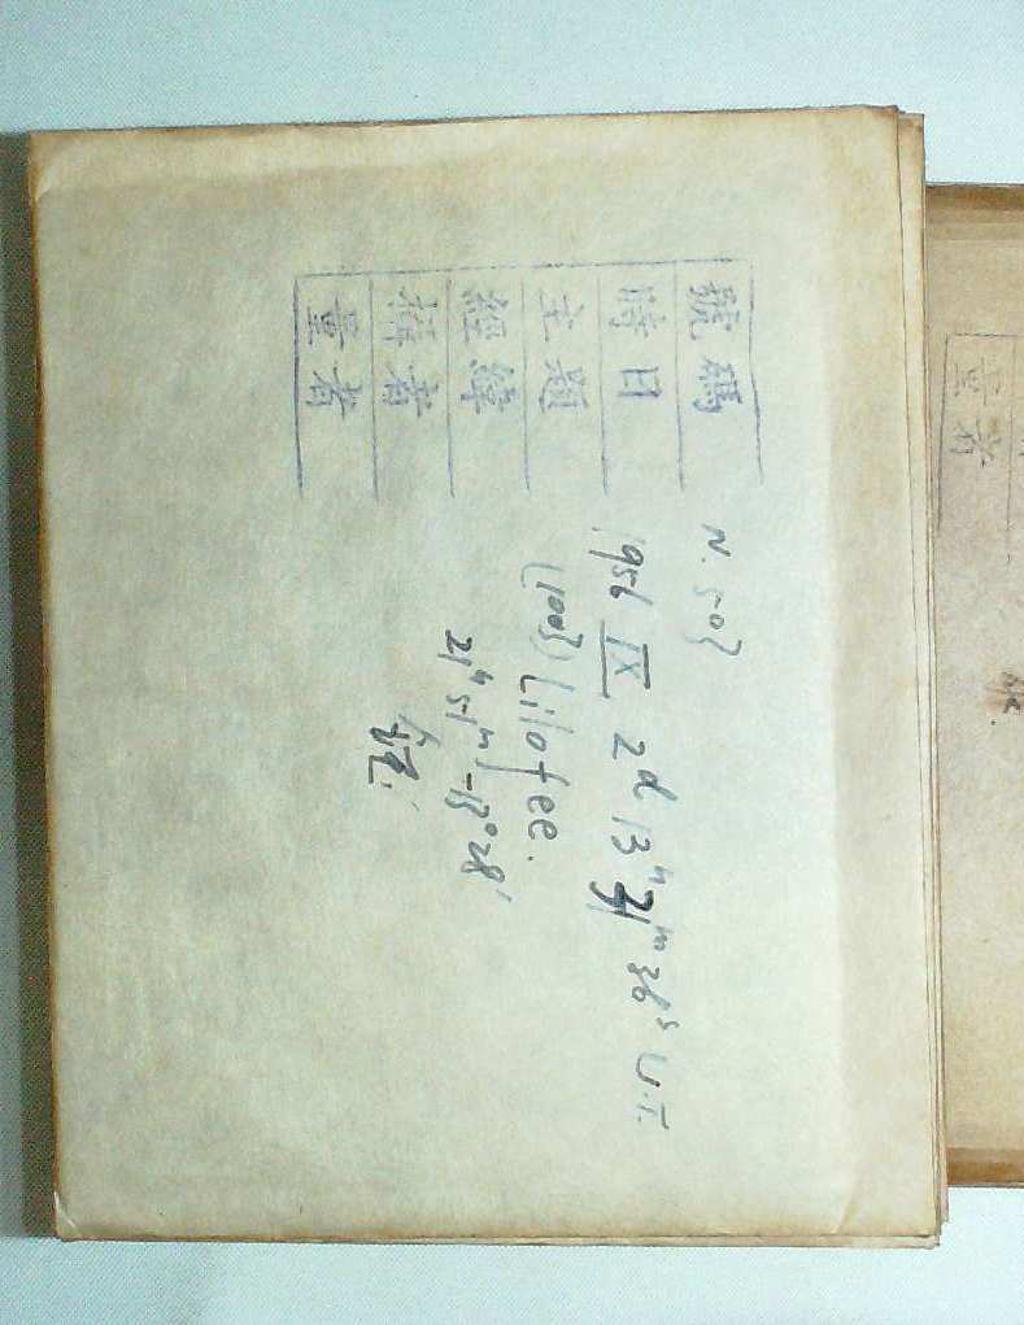 號碼 N. 503
時日 1956 IX 2d 13h 31m 36s U.T.
主題 (1003) Lilofee.
經緯 21h 51m -13°28'
攝者
量者
量者